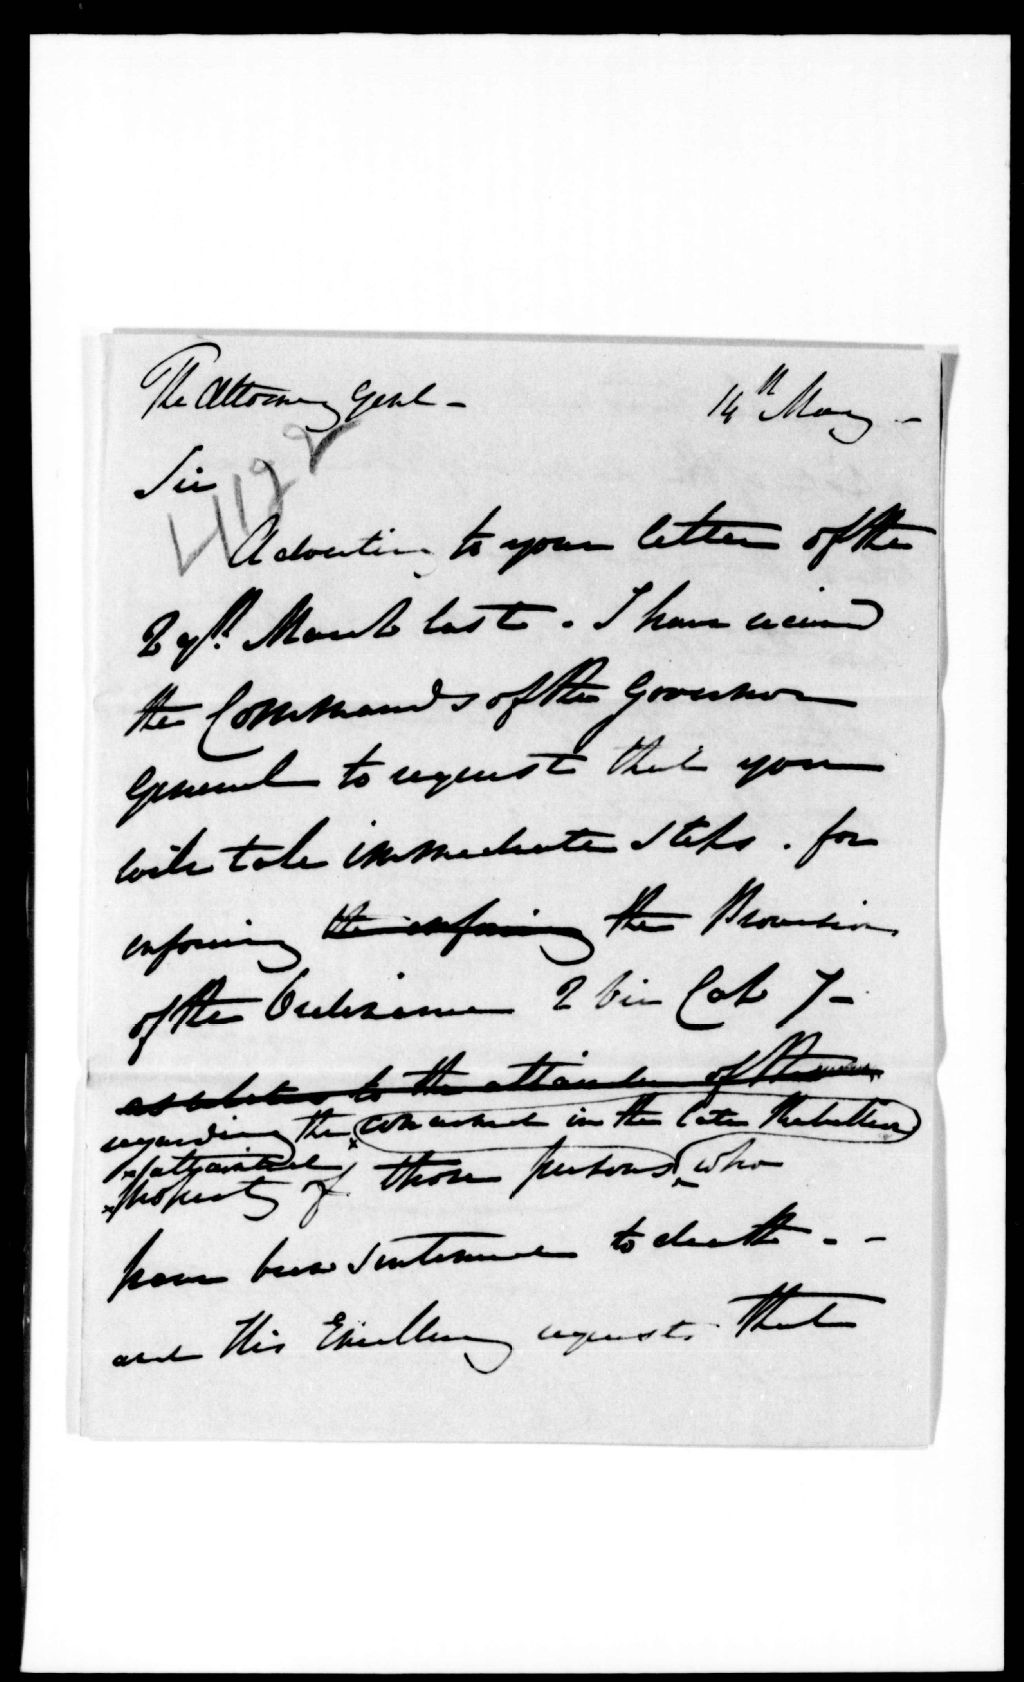 The Attorney Genl - 14th May -
4192
Sir
Adverting to your letter of the
29th March last. I have received
the Commands of the Governor
General to request that you
will take immediate steps. for
enforcing the enforcing the Provision
of the Ordinance 2 Vic Cap 7 -
as relates to the attainder of the
regarding the concerned in the late Rebellion
attainted
property of those persons who
have been sentenced to death - -
and His Excellency requests that